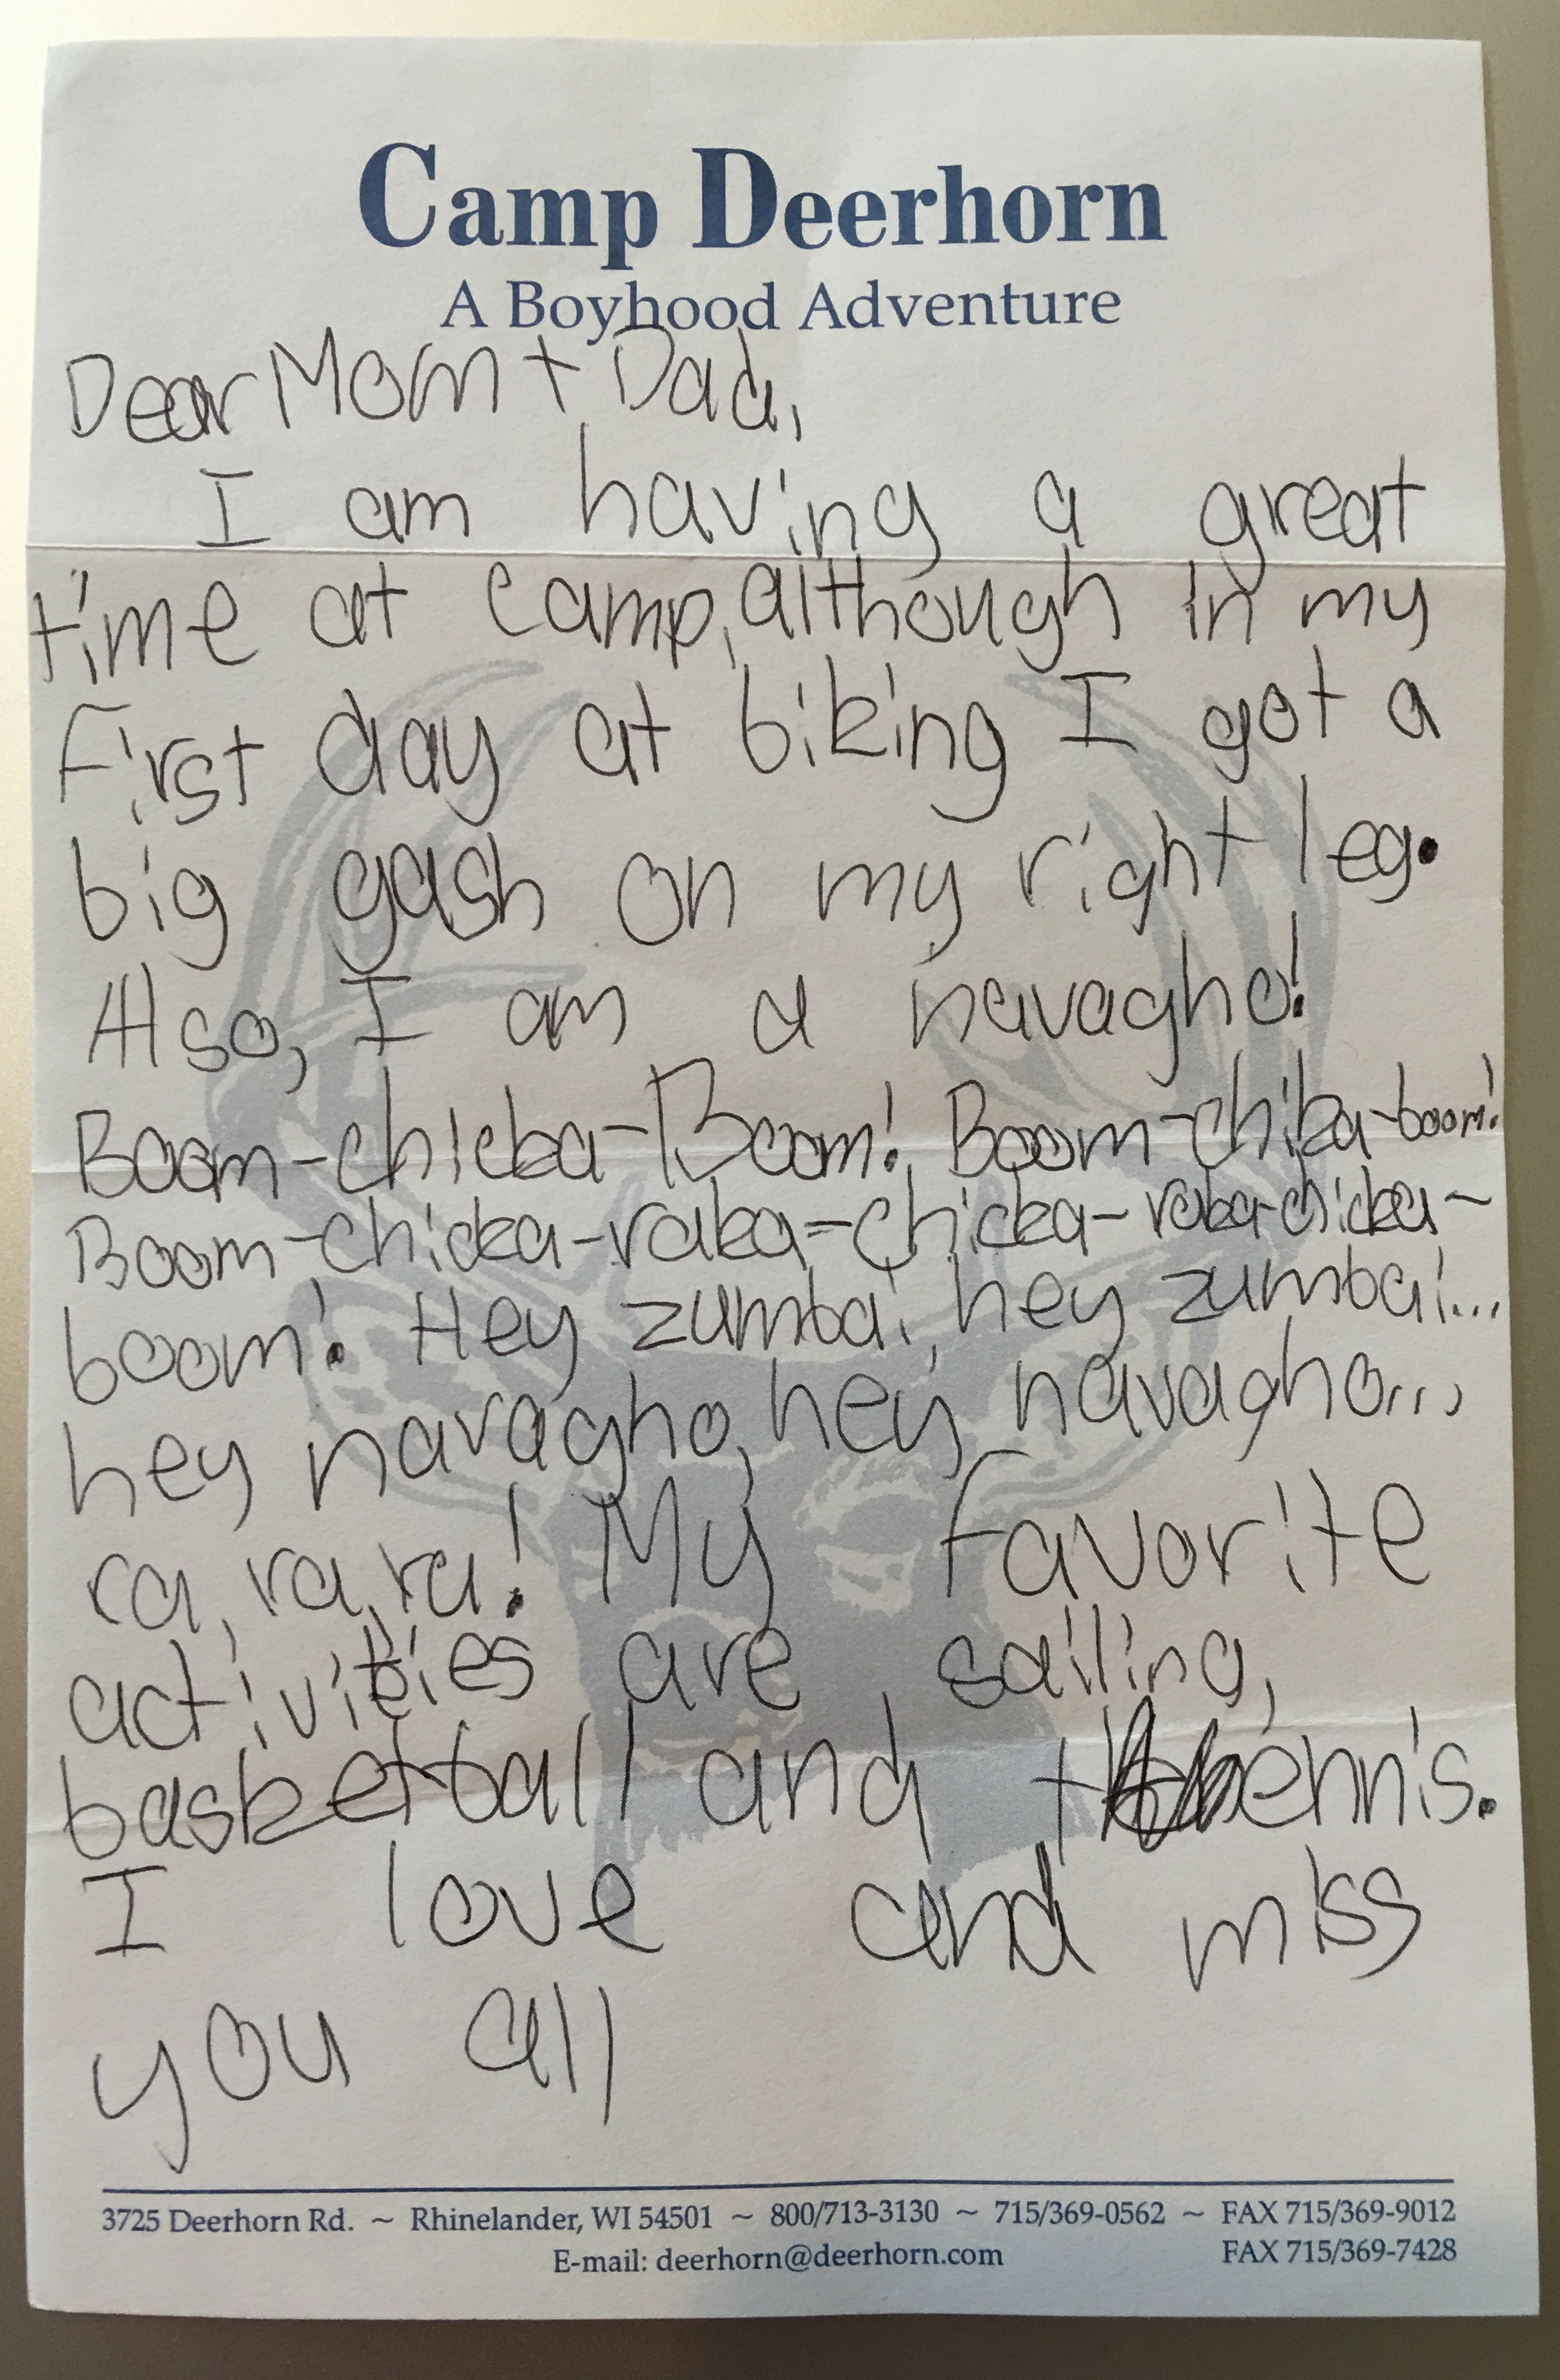 Camp Deerhorn
A Boyhood Adventure
Dear Mom + Dad,
I am having a great
time at camp, although in my
First day at biking I got a
big gash on my right leg.
Also, I am a navagho!
Boom-chicka-Boom! Boom-chika-boom!
Boom-chicka-raka-chicka-raka-chicka-
boom! Hey zumba!, hey zumba!...
hey navagho, hey navagho...
ra, ra, ra! My favorite
activities are, sailing,
basketball and tennis.
I love and miss
you all
3725 Deerhorn Rd. ~ Rhinelander, WI 54501 ~ 800/713-3130 ~ 715/369-0562 ~ FAX 715/369-9012
E-mail: deerhorn@deerhorn.com FAX 715/369-7428